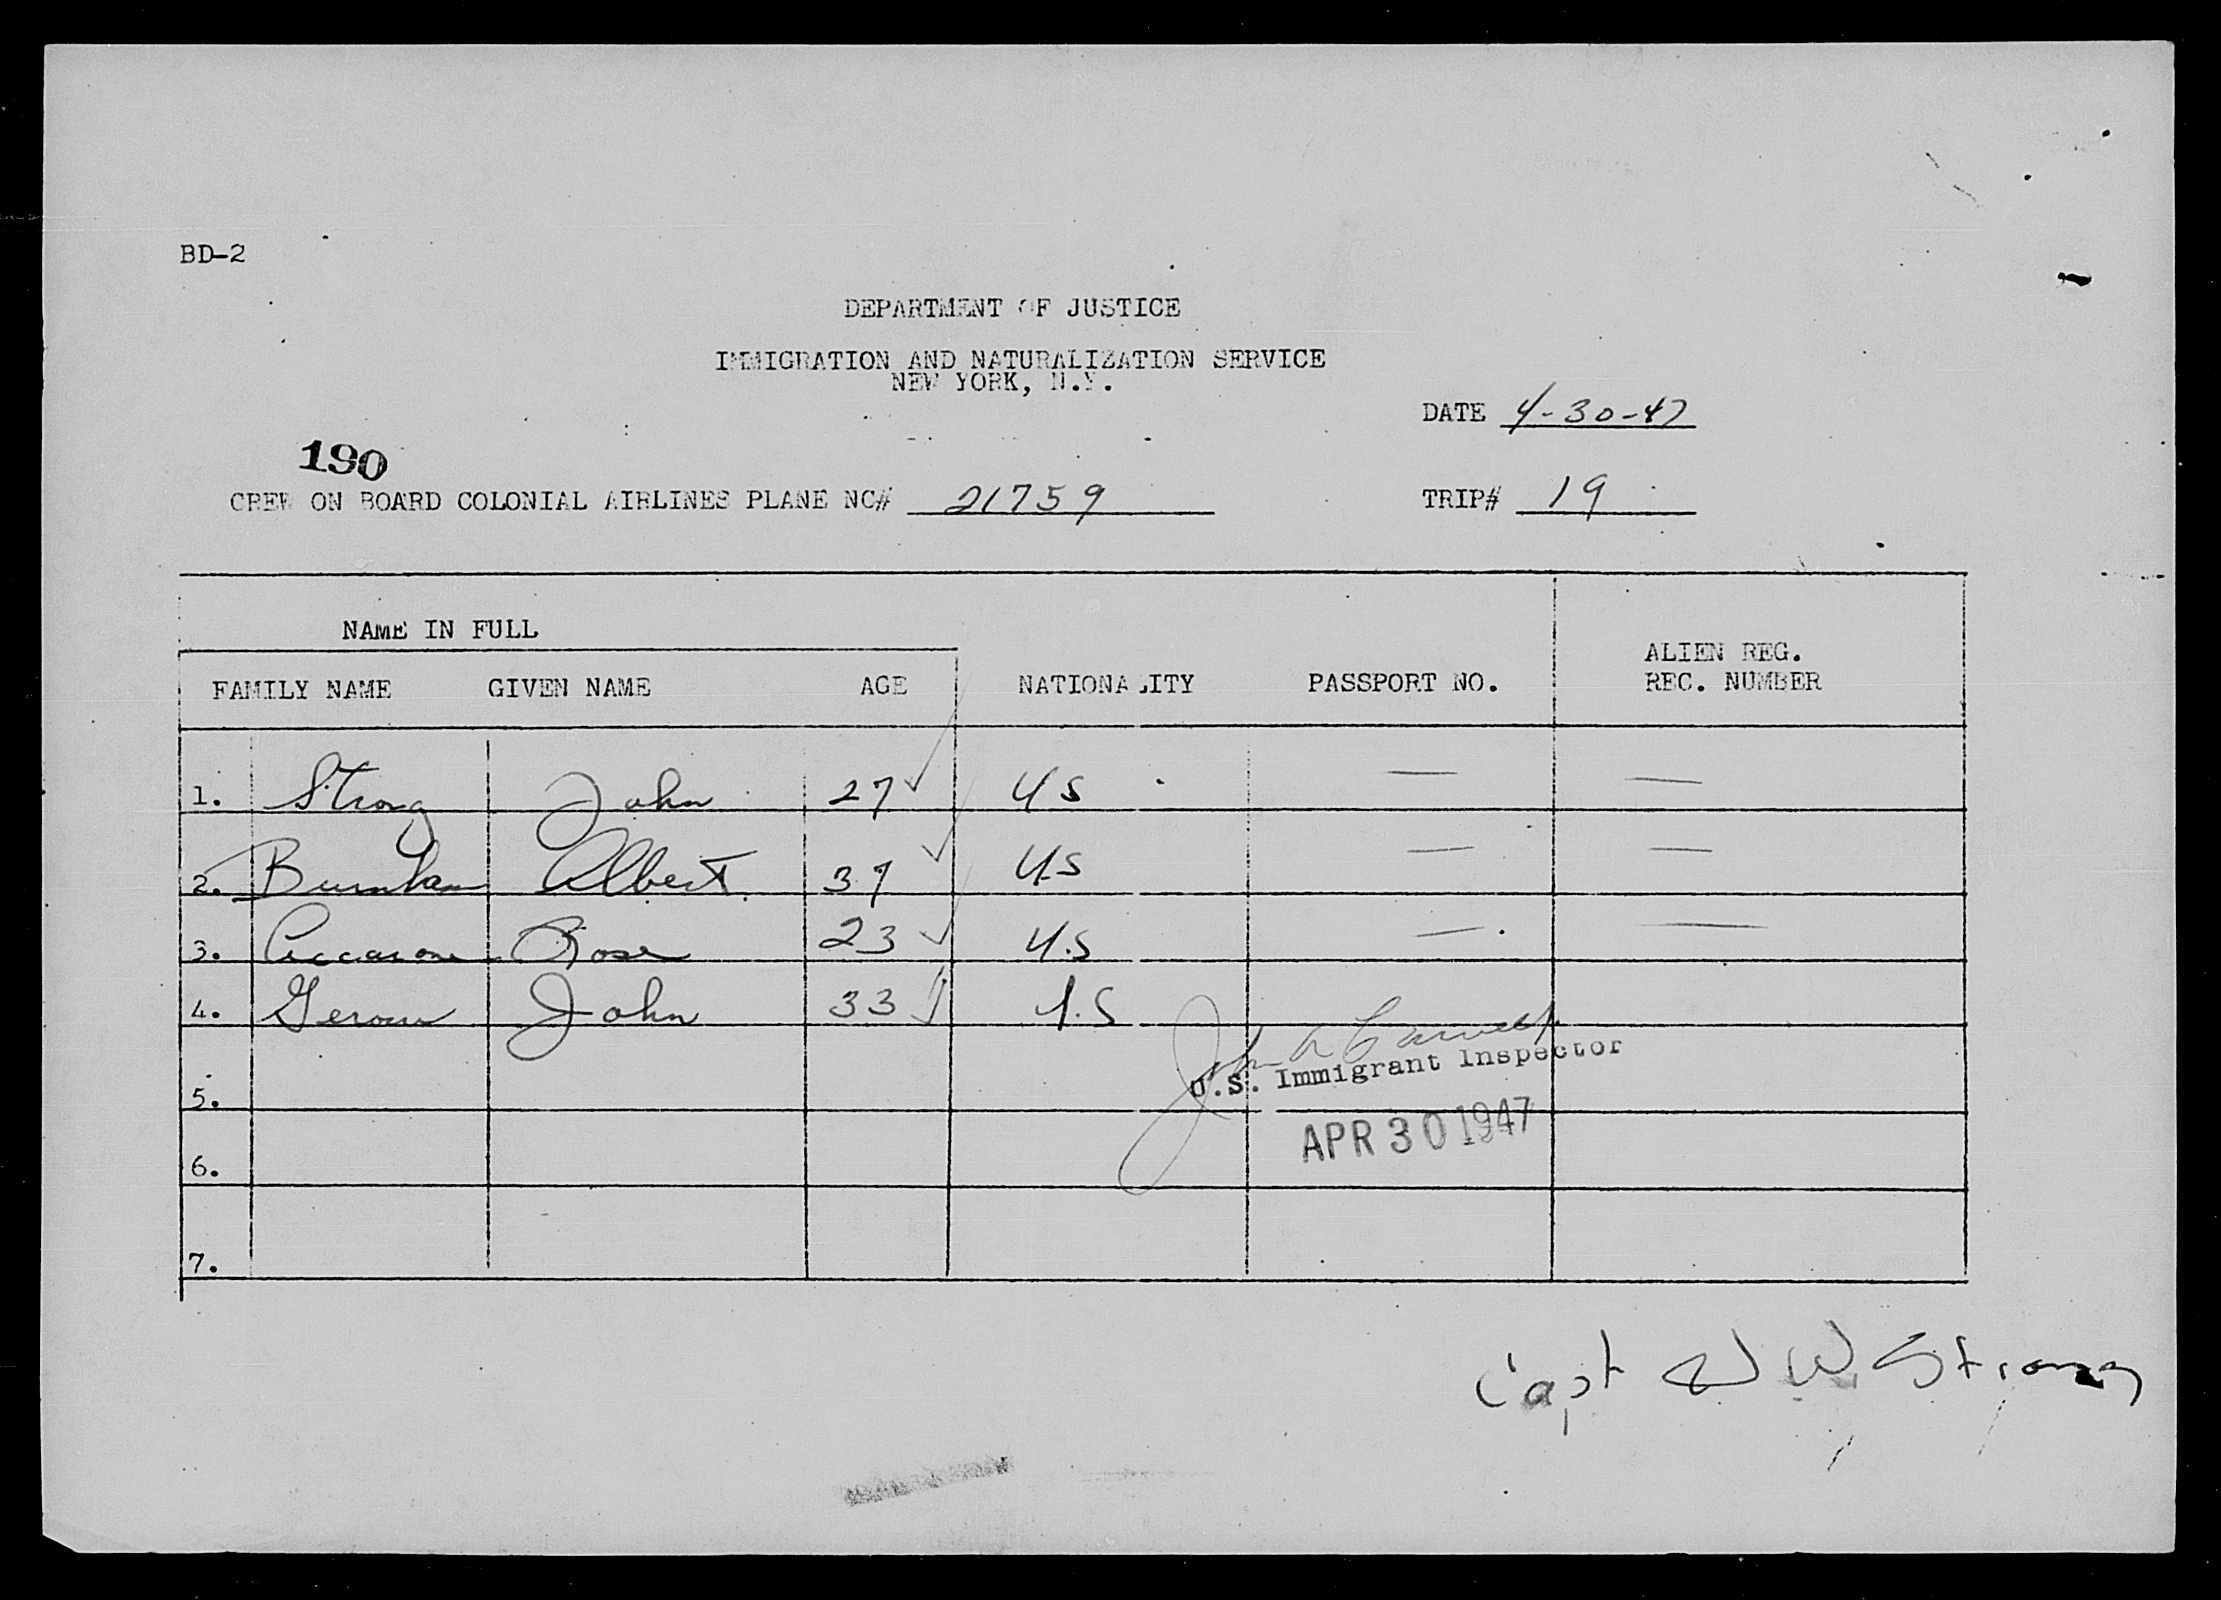 BD-2
DEPARTMENT OF JUSTICE
IMMIGRATION AND NATURALIZATION SERVICE
NEW YORK, N.Y.
DATE 4-30-47
190
CREW ON BOARD COLONIAL AIRLINES PLANE NC# 21759 TRIP# 19
NAME IN FULL
FAMILY NAME GIVEN NAME AGE NATIONALITY PASSPORT NO. ALIEN REG. REC. NUMBER
1. Strong John 27 US — —
2. Burnham Albert 37 US — —
3. Rose 23 U.S — —
4. Gerow John 33 U.S
John A
U.S. Immigrant Inspector
5.
APR 30 1947
6.
7.
Capt J W Strong